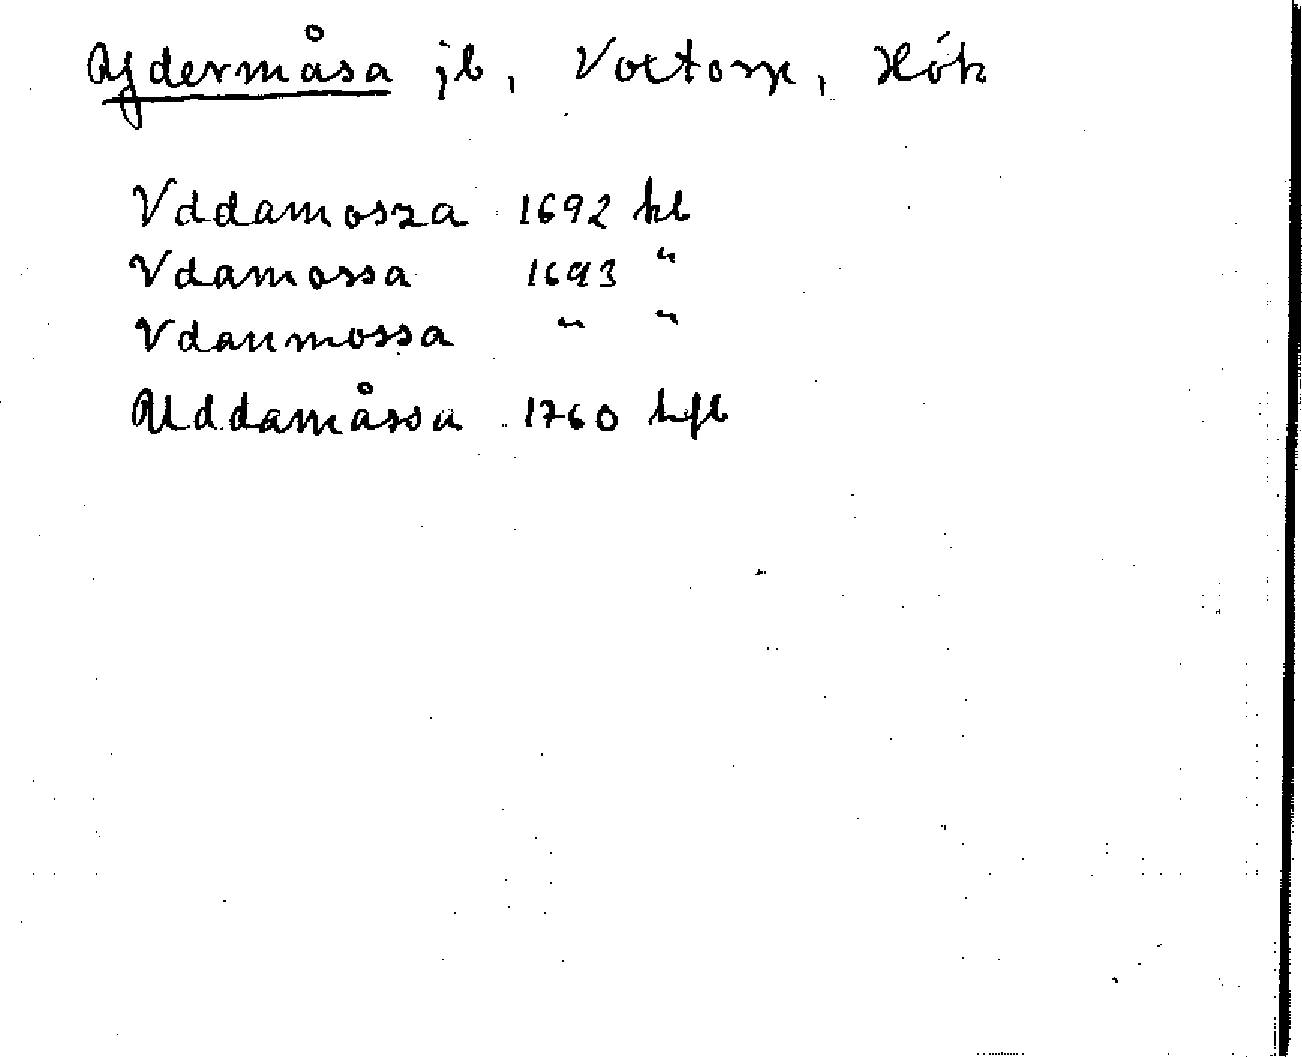 Ydermåsa jb, Voxtorp, Hök
Vddamosza 1692 kl
Vdamossa 1693 "
Vdanmossa " "
Uddamåssa 1760 hfl